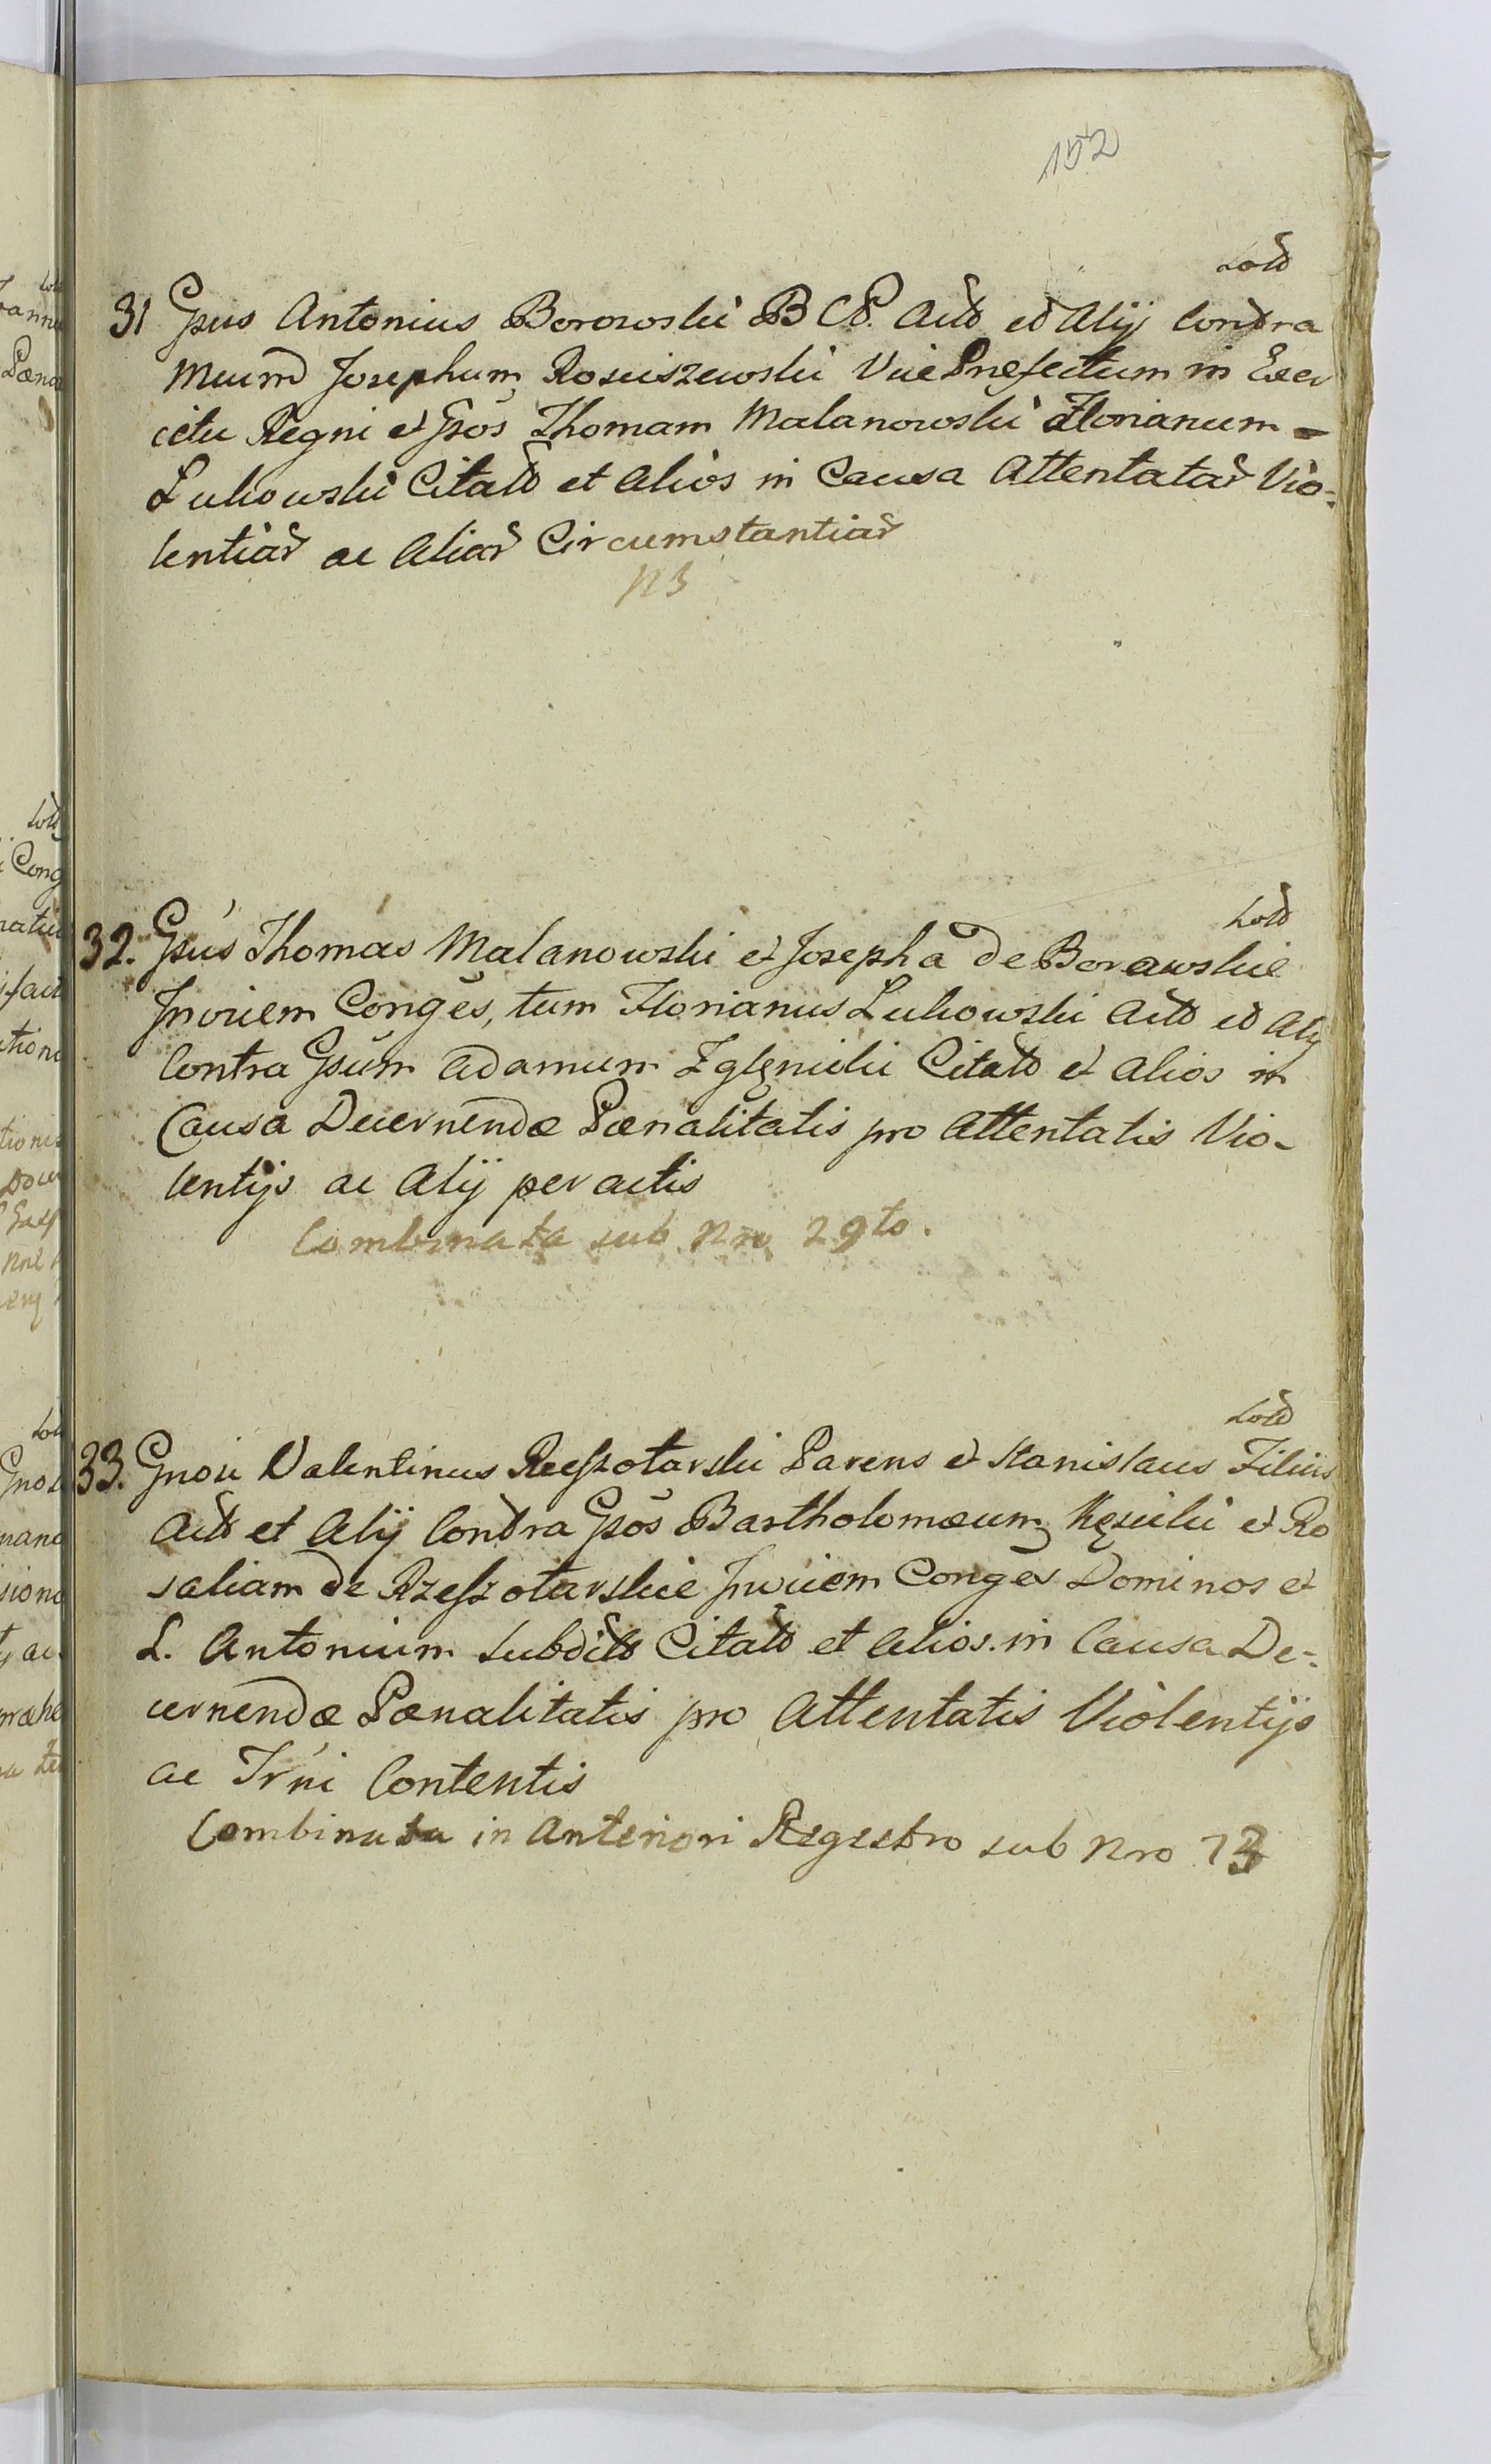 152
31 Gsus Antonius Borowski B C P. Actt et Alij Contra
Mcum Josephum Rosciszewski Vice Præfectum in Exer
citu Regni et Gsos Thomam Malanowski Florianum =
Lukowski Citatt et Alios in Causa Attentatar Vio=
lentiar ac Aliar Circumstantiar
32. Gsus Thomas Malanowski et Josepha de Borawskie
Invicem Conges, tum Florianus Lukowski Actt et Alij
Contra Gsum Adamum Zglenicki Citatt et Alios in
Causa Decernendæ Pænalitatis pro Attentatis Vio-
lentijs ac Alij peractis
Combinata sub Nro 29to.
33. Gnosi Valentinus Rzeszotarski Parens et Stanislaus Filius
Actt et Alij Contra Gsos Bartholomæum Kęsicki et Ro
saliam de Rzeszotarskie Invicem Conges Dominos et
L. Antonium Subditt Citatt et Alios in Causa De=
cernendæ Pænalitatis pro Attentatis Violentijs
ac Trni Contentis
Combinata in Anteriori Regestro sub Nro 73